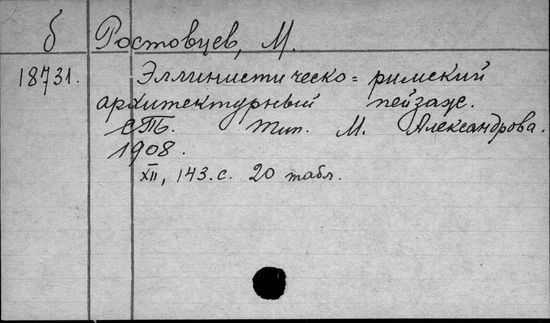 б Ростовцев, М.
18731. Эллинистическо=римский
архитектурный пейзаж.
СПб. Тип. М. Александрова.
1908.
XII, 143.с. 20 табл.